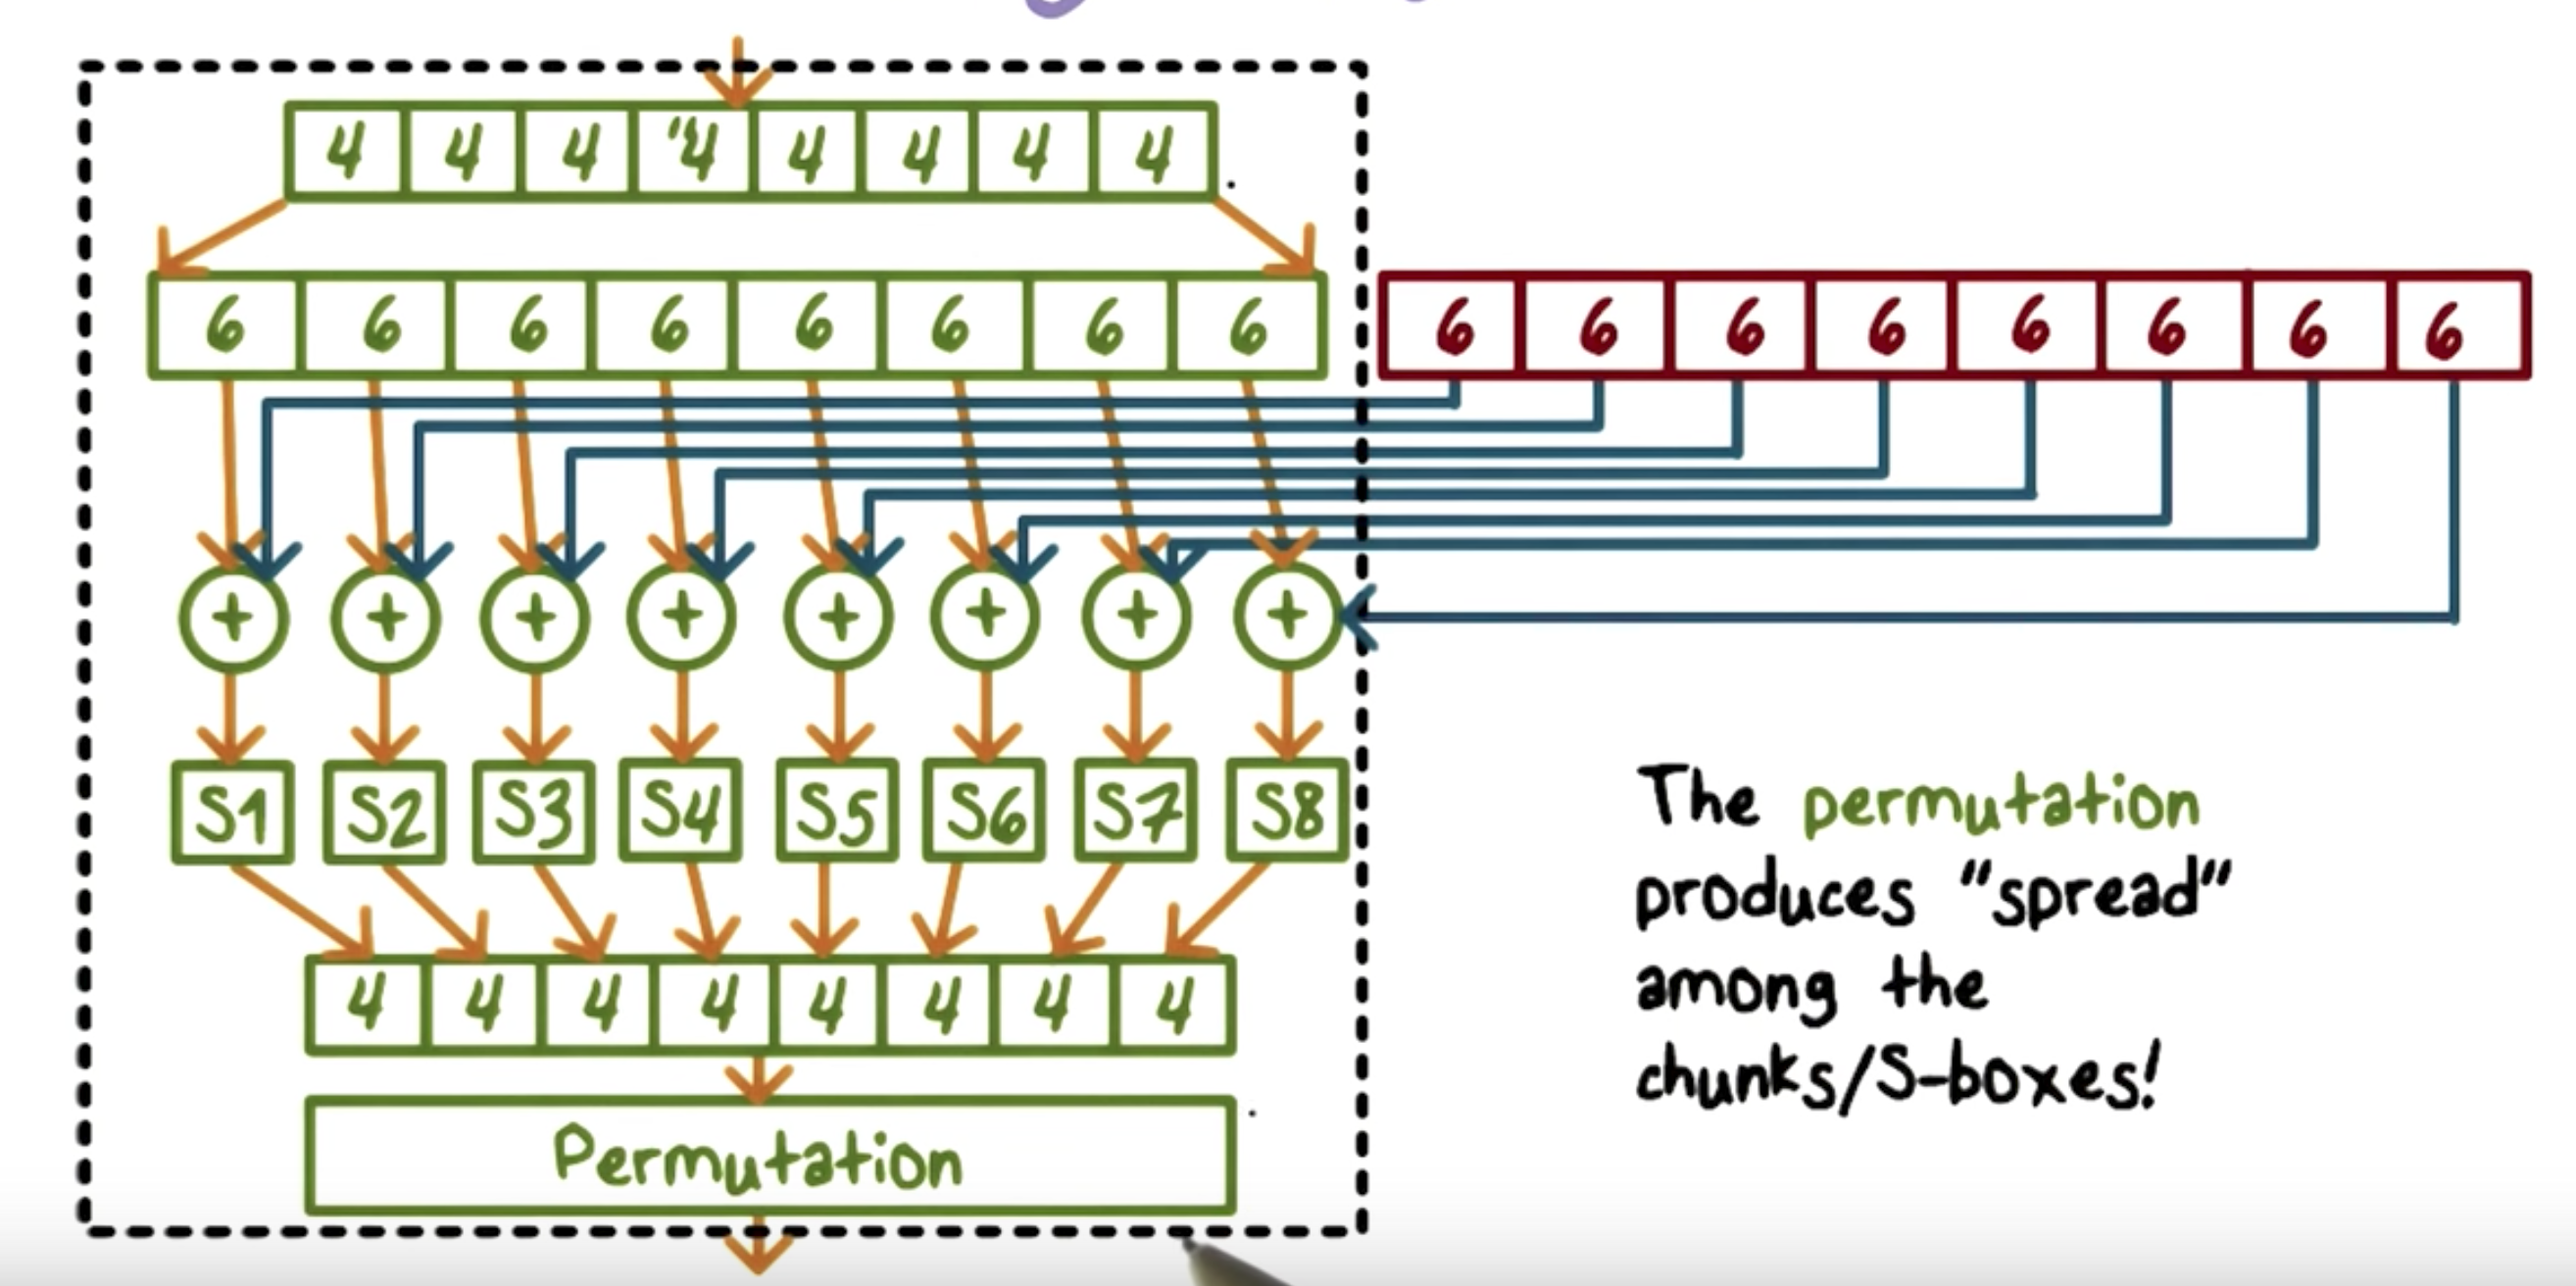 4 4 4 4 4 4 4 4
6 6 6 6 6 6 6 6
6 6 6 6 6 6 6 6
+ + + + + + + +
S1 S2 S3 S4 S5 S6 S7 S8
4 4 4 4 4 4 4 4
Permutation
The permutation
produces "spread"
among the
chunks/S-boxes!